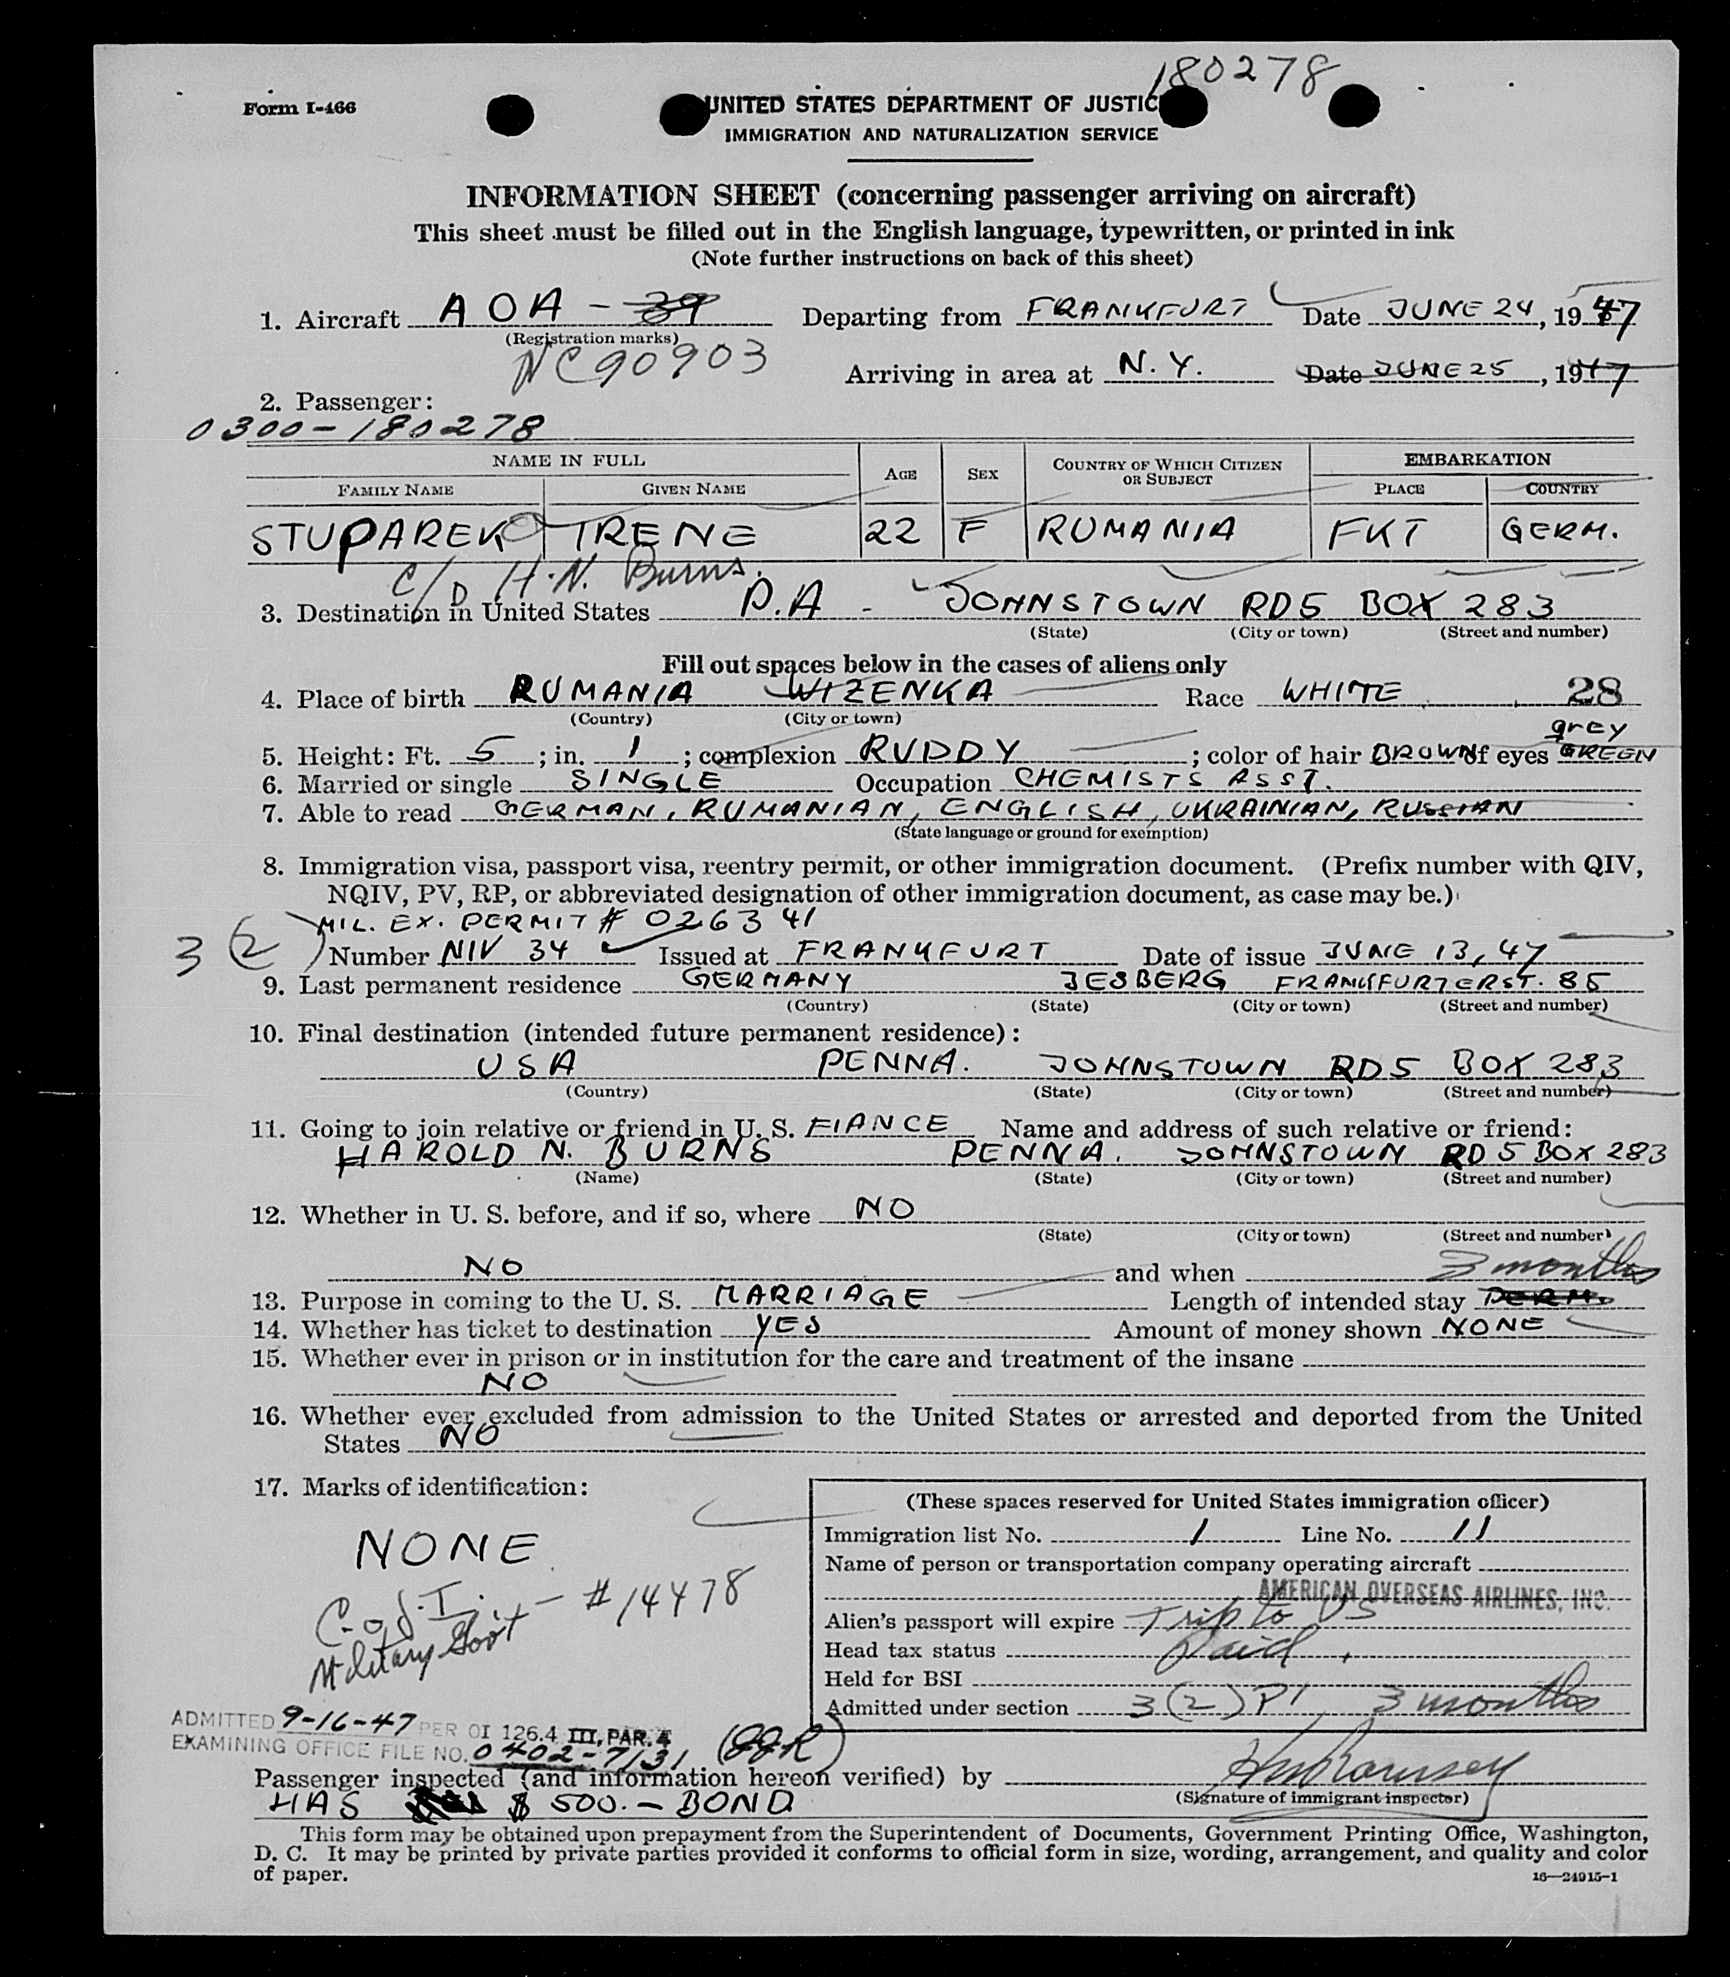 180278
Form I-466
UNITED STATES DEPARTMENT OF JUSTIC
IMMIGRATION AND NATURALIZATION SERVICE
INFORMATION SHEET (concerning passenger arriving on aircraft)
This sheet must be filled out in the English language, typewritten, or printed in ink
(Note further instructions on back of this sheet)
1. Aircraft AOA - 39 Departing from FRANKFURT Date JUNE 24, 1947
(Registration marks)
NC90903
Arriving in area at N.Y. Date JUNE 25, 1947
2. Passenger:
0300-180278
NAME IN FULL AGE SEX COUNTRY OF WHICH CITIZEN OR SUBJECT EMBARKATION
FAMILY NAME GIVEN NAME PLACE COUNTRY
STUPAREK IRENE 22 F RUMANIA FKT GERM.
C/O H.N. Burns.
3. Destination in United States P.A - JOHNSTOWN RD5 BOX 283
(State) (City or town) (Street and number)
Fill out spaces below in the cases of aliens only
4. Place of birth RUMANIA WIZENKA Race WHITE 28
(Country) (City or town)
grey
5. Height: Ft. 5; in. 1; complexion RUDDY; color of hair BROWN of eyes GREEN
6. Married or single SINGLE Occupation CHEMISTS ASST.
7. Able to read GERMAN, RUMANIAN, ENGLISH, UKRAINIAN, RUSSIAN
(State language or ground for exemption)
8. Immigration visa, passport visa, reentry permit, or other immigration document. (Prefix number with QIV,
NQIV, PV, RP, or abbreviated designation of other immigration document, as case may be.)
MIL. EX. PERMIT # 026341
3 (2) Number NIV 34 Issued at FRANKFURT Date of issue JUNE 13, 47
9. Last permanent residence GERMANY JESBERG FRANKFURTERST. 85
(Country) (State) (City or town) (Street and number)
10. Final destination (intended future permanent residence):
USA PENNA. JOHNSTOWN RD5 BOX 283
(Country) (State) (City or town) (Street and number)
11. Going to join relative or friend in U. S. FIANCE Name and address of such relative or friend:
HAROLD N. BURNS PENNA. JOHNSTOWN RD 5 BOX 283
(Name) (State) (City or town) (Street and number)
12. Whether in U. S. before, and if so, where NO
(State) (City or town) (Street and number)
NO and when 3 months
13. Purpose in coming to the U. S. MARRIAGE Length of intended stay PERM.
14. Whether has ticket to destination YES Amount of money shown NONE
15. Whether ever in prison or in institution for the care and treatment of the insane
NO
16. Whether ever excluded from admission to the United States or arrested and deported from the United
States NO
17. Marks of identification:
NONE
C. of I. - # 14478
Military Govt
(These spaces reserved for United States immigration officer)
Immigration list No. 1 Line No. 11
Name of person or transportation company operating aircraft
AMERICAN OVERSEAS AIRLINES, INC.
Alien's passport will expire Trip to US
Head tax status Paid.
Held for BSI
Admitted under section 3(2) P1 3 months
ADMITTED 9-16-47 PER OI 126.4 III, PAR. 4
EXAMINING OFFICE FILE NO. 0402-7131 (JJR)
Passenger inspected (and information hereon verified) by
(Signature of immigrant inspector)
HAS $ 500.- BOND
This form may be obtained upon prepayment from the Superintendent of Documents, Government Printing Office, Washington,
D. C. It may be printed by private parties provided it conforms to official form in size, wording, arrangement, and quality and color
of paper.
16—24915-1